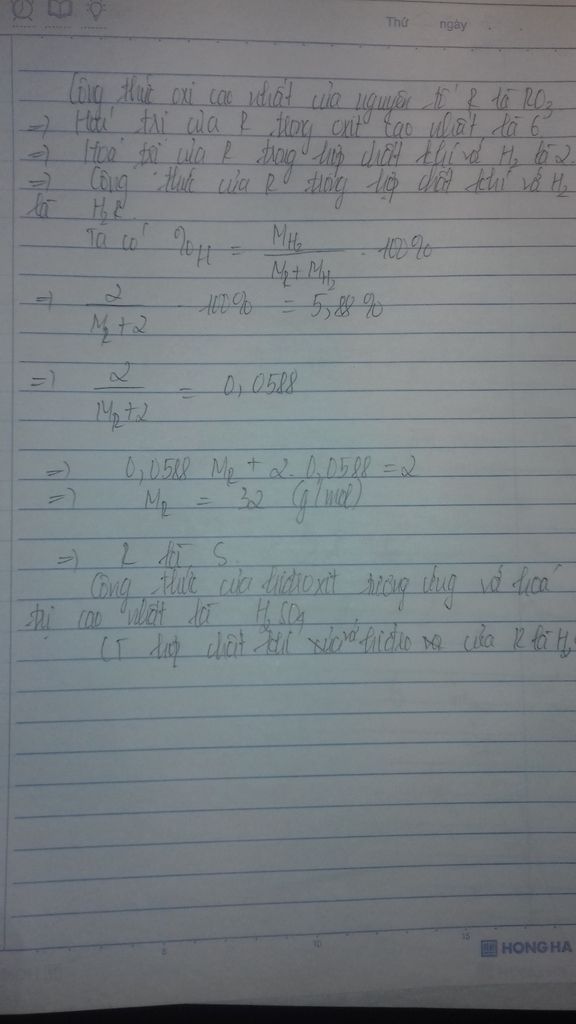 Thứ ngày
Công thức oxi cao nhất của nguyên tố R là RO3
=> Hoá trị của R trong oxit cao nhất là 6
=> Hoá trị của R trong hợp chất khí với H2 là 2.
=> Công thức của R trong hợp chất khí với H2
là H2R.
Ta có %H = MH2 / (MR + MH2) . 100%
=> 2 / (MR + 2) . 100% = 5,88%
=> 2 / (MR + 2) = 0,0588
=> 0,0588 MR + 2. 0,0588 = 2
=> MR = 32 (g/mol)
=> R là S.
Công thức của hidroxit tương ứng với hoá
trị cao nhất là H2SO4
CT hợp chất khí với hidro của R là H2
5 10 15
HONG HA